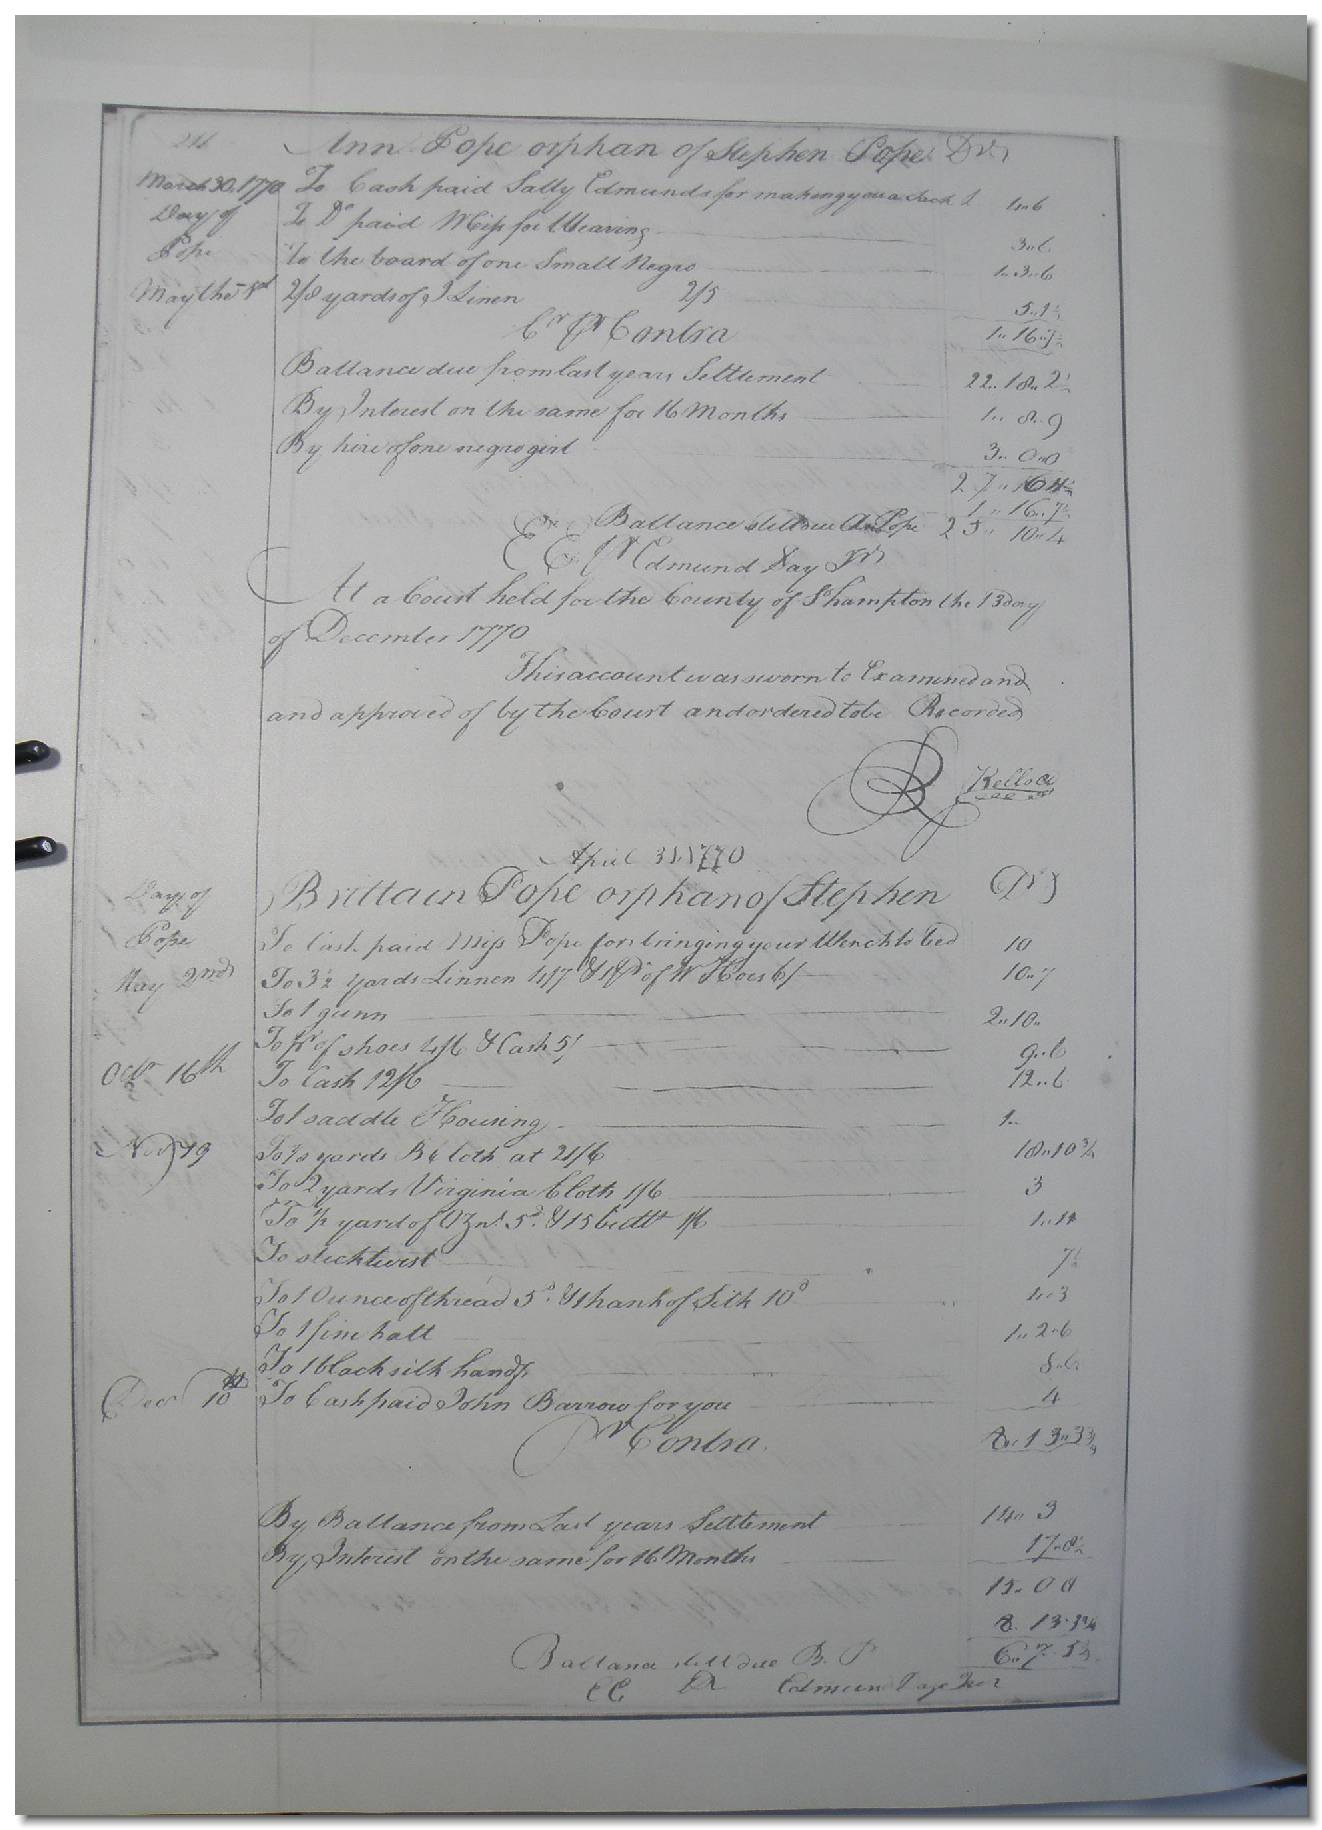 Ann Pope orphan of Stephen Pope Dr
March 30. 1770 To Cash paid Sally Edmunds for making you a 1,,6
Day of To Do paid Miss for Weaving 3,,6
Pope To the board of one Small Negro 1,,3,,6
May the 8d 2/8 yards of Linen 2/5 5,,1½
Cr Pr Contra 1,,16,,7½
Ballance due from last years Settlement 22,,18,,2½
By Interest on the same for 16 Months 1,,8,,9
By hire of one negro girl 3,,0,,0
27,,6 4½
1,,16,,7½
Ballance still due A Pope 25,,10,,4
E E Pr Edmund Day
At a Court held for the County of So hampton the 13 day
of December 1770
This account was sworn to Examined and
and approved of by the Court and ordered to be Recorded
R Kello
April 31. 1770
Day of Brittain Pope orphan of Stephen Dr
Pope To Cash paid Miss Pope for bringing your Wench to bed 10
May 2nd To 3½ yards Linnen & 1 Pr of W Hoes 6/ 10,,7
To 1 gunn 2,,10,,
To Pr of shoes 4/6 & Cash 5/ 9,,6
Octr 16th To Cash 12/6 12,,6
To 1 saddle Housing 1,,
Novr 19 yards B Cloth at 21/6 18,,10¾
To 2 yards Virginia Cloth 1/6 3
To ½ yard of Ozns 5d & 15 1/6 1,,11
To stick twist 7½
To 1 Ounce of thread 5d & 1 hank of Silk 10d 1,,3
To 1 fine hatt 1,,2,,6
To 1 black silk handf 8,,6
Decr 10th To Cash paid John Barrow for you 4
Pr Contra 8,,13,,3¾
By Ballance from Last years Settlement 14,, 3
By Interest on the same for 16 Months 17,,8½
15,, 0
8,,13,,3¾
Ballance still due B. P 6,,7
E E Pr Edmun